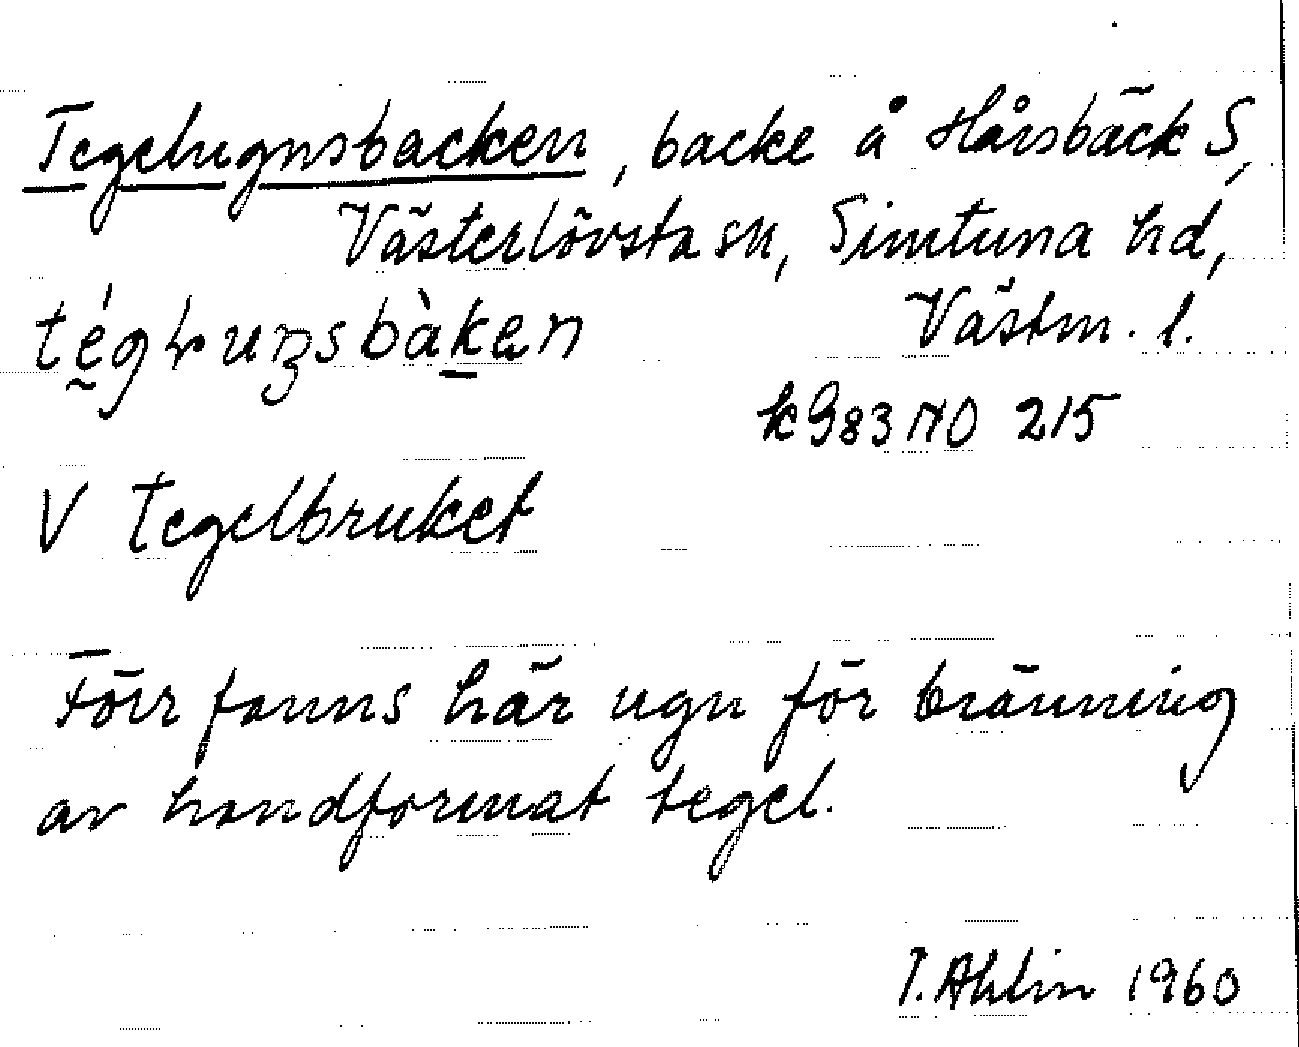 Tegelugnsbacken, backe å Hårsbäck S,
Västerlövsta sn, Simtuna hd,
Västm. l.
k983 NO 215
V Tegelbruket
Förr fanns här ugn för bränning
av handformat tegel.
T. Ahlin 1960